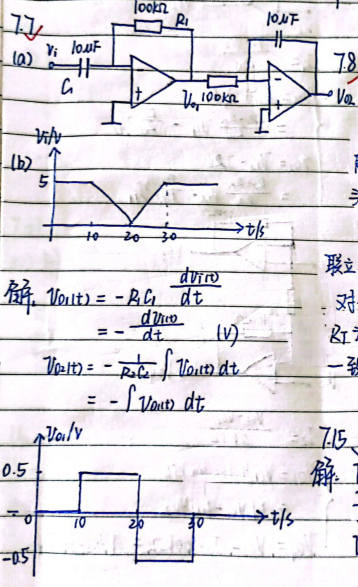 7.7
(a)
Vi 10μF
C₁
100kΩ
R₁
-
+
Vo₁
100kΩ
10μF
-
+
Vo₂
7.8
(b)
Vi/V
5
10 20 30
t/s
解: Vo₁(t) = -R₁C₁ dVi(t)/dt
= - dVi(t)/dt (V)
Vo₂(t) = - 1/R₂C₂ ∫ Vo₁(t) dt
= -∫ Vo₁(t) dt
联立
对
一
Vo₁/V
0.5
0
10 20 30
t/s
-0.5
7.15
解: